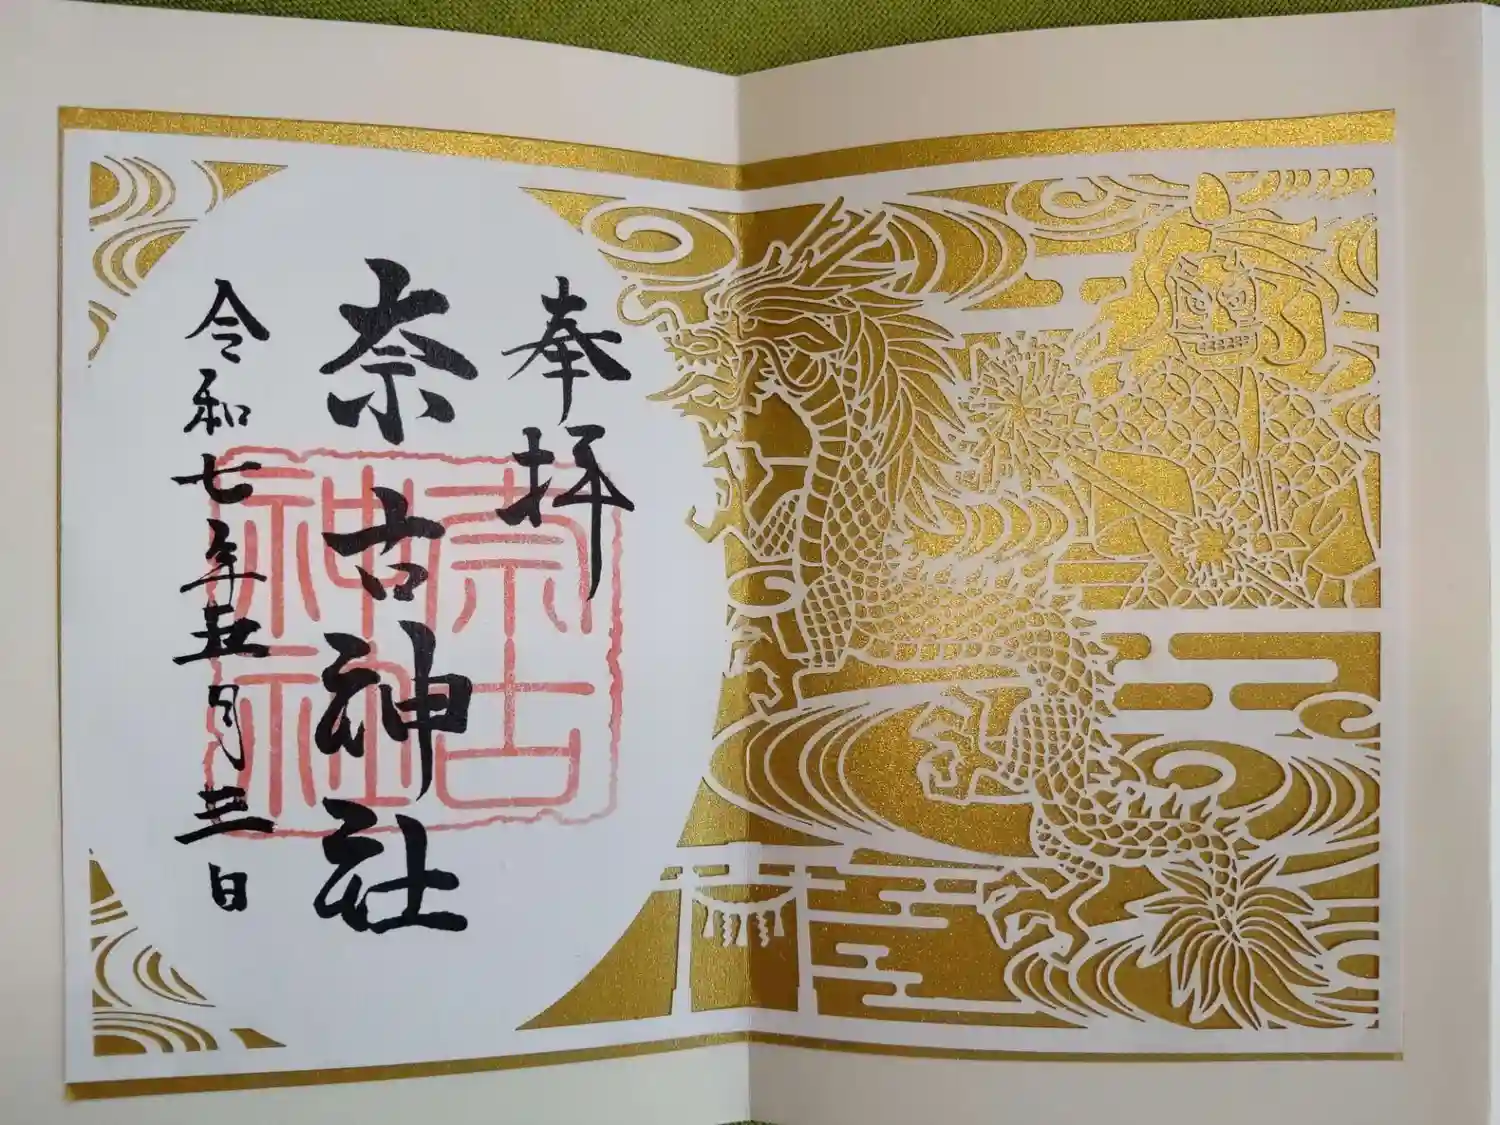 奉拝
奈古神社
令和七年五月三日
奈古
神社